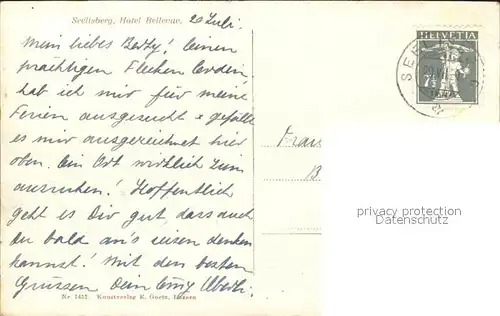 Seelisberg, Hotel Bellevue.
20 Juli.
Mein liebes Berty! Einen
prächtigen Flecken Erden
hab ich mir für meine
Ferien ausgesucht & gefällt
es mir ausgezeichnet hier
oben. Ein Ort wirklich zum
ausruhen! Hoffentlich
geht es Dir gut, dass auch
Du bald an's reisen denken
kannst! Mit den besten
Grüssen Dein
Nr. 1452. Kunstverlag E. Goetz, Luzern
HELVETIA
7½
SEE
Frau
B
privacy protection